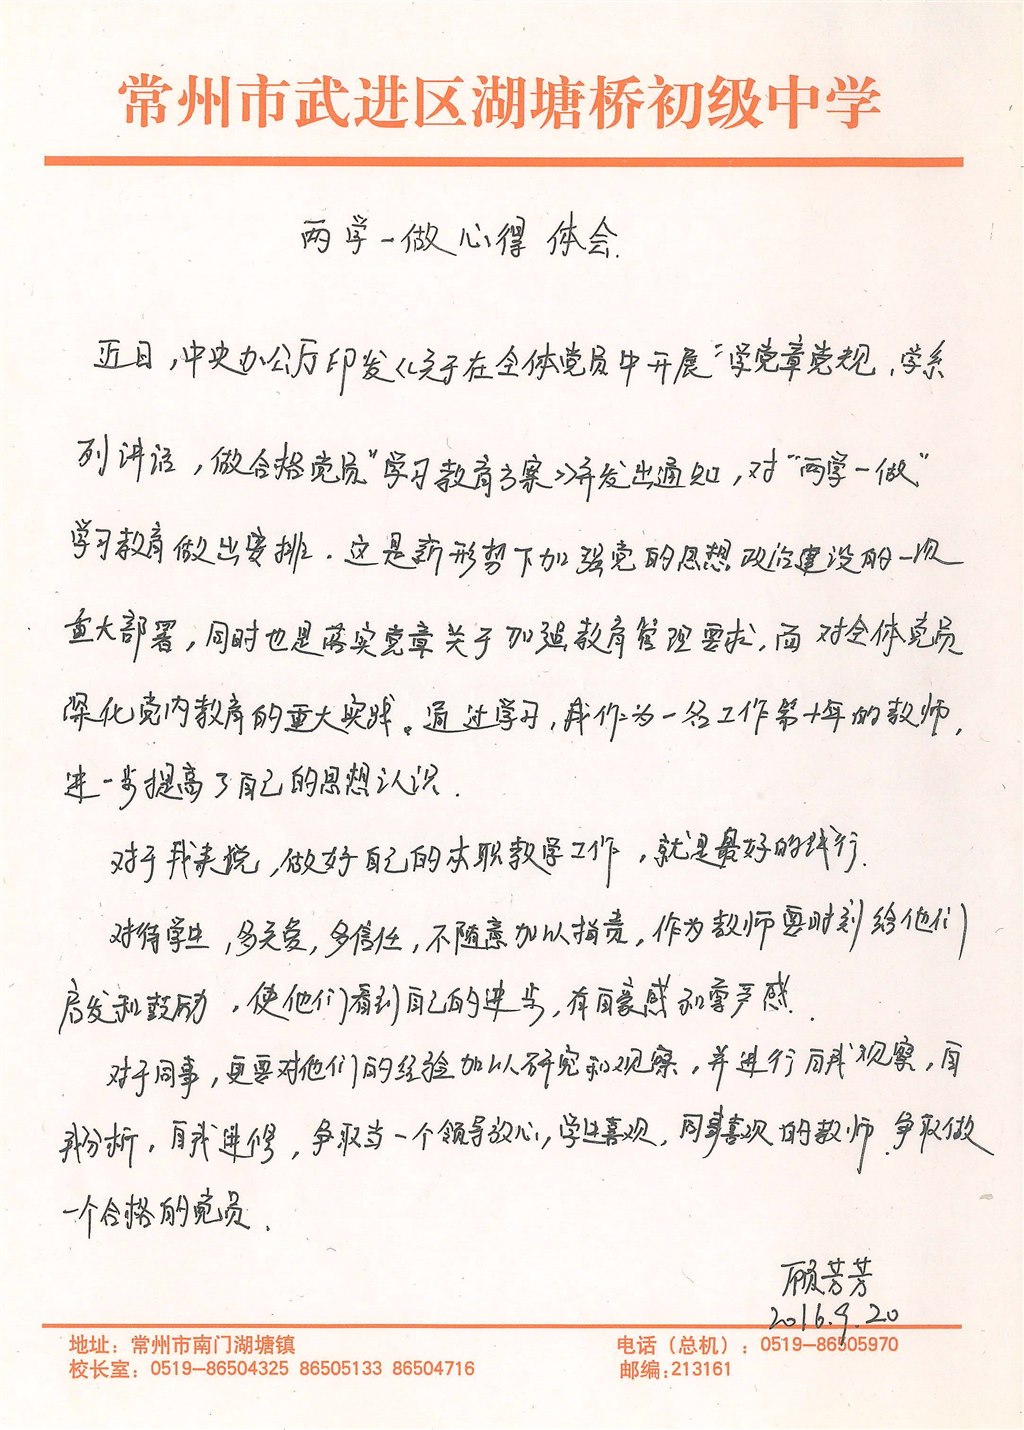 常州市武进区湖塘桥初级中学
两学一做心得体会.
近日,中央办公厅印发《关于在全体党员中开展“学党章党规,学系
列讲话,做合格党员”学习教育方案》并发出通知,对“两学一做”
学习教育做出安排.这是新形势下加强党的思想政治建设的一次
重大部署,同时也是落实党章关于加强教育管理要求,面对全体党员
深化党内教育的重大实践。通过学习,我作为一名工作第十年的教师,
进一步提高了自己的思想认识.
对于我来说,做好自己的本职教学工作,就是最好的践行.
对待学生,多关爱,多信任,不随意加以指责,作为教师要时刻给他们
启发和鼓励,使他们看到自己的进步,有自豪感和尊严感.
对于同事,更要对他们的经验加以研究和观察,并进行自我观察,自
我分析,自我进修,争取当一个领导放心,学生喜欢,同事喜欢的教师.争取做
一个合格的党员.
顾芳芳
2016.9.20
地址：常州市南门湖塘镇 电话（总机）：0519—86505970
校长室：0519—86504325 86505133 86504716 邮编:213161